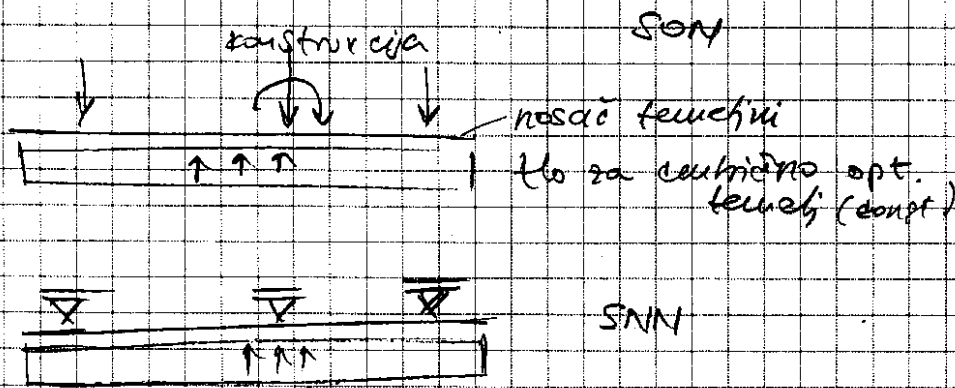 SON
konstrukcija
nosač temeljni
tlo za centrično opt.
temelj (const)
SNN